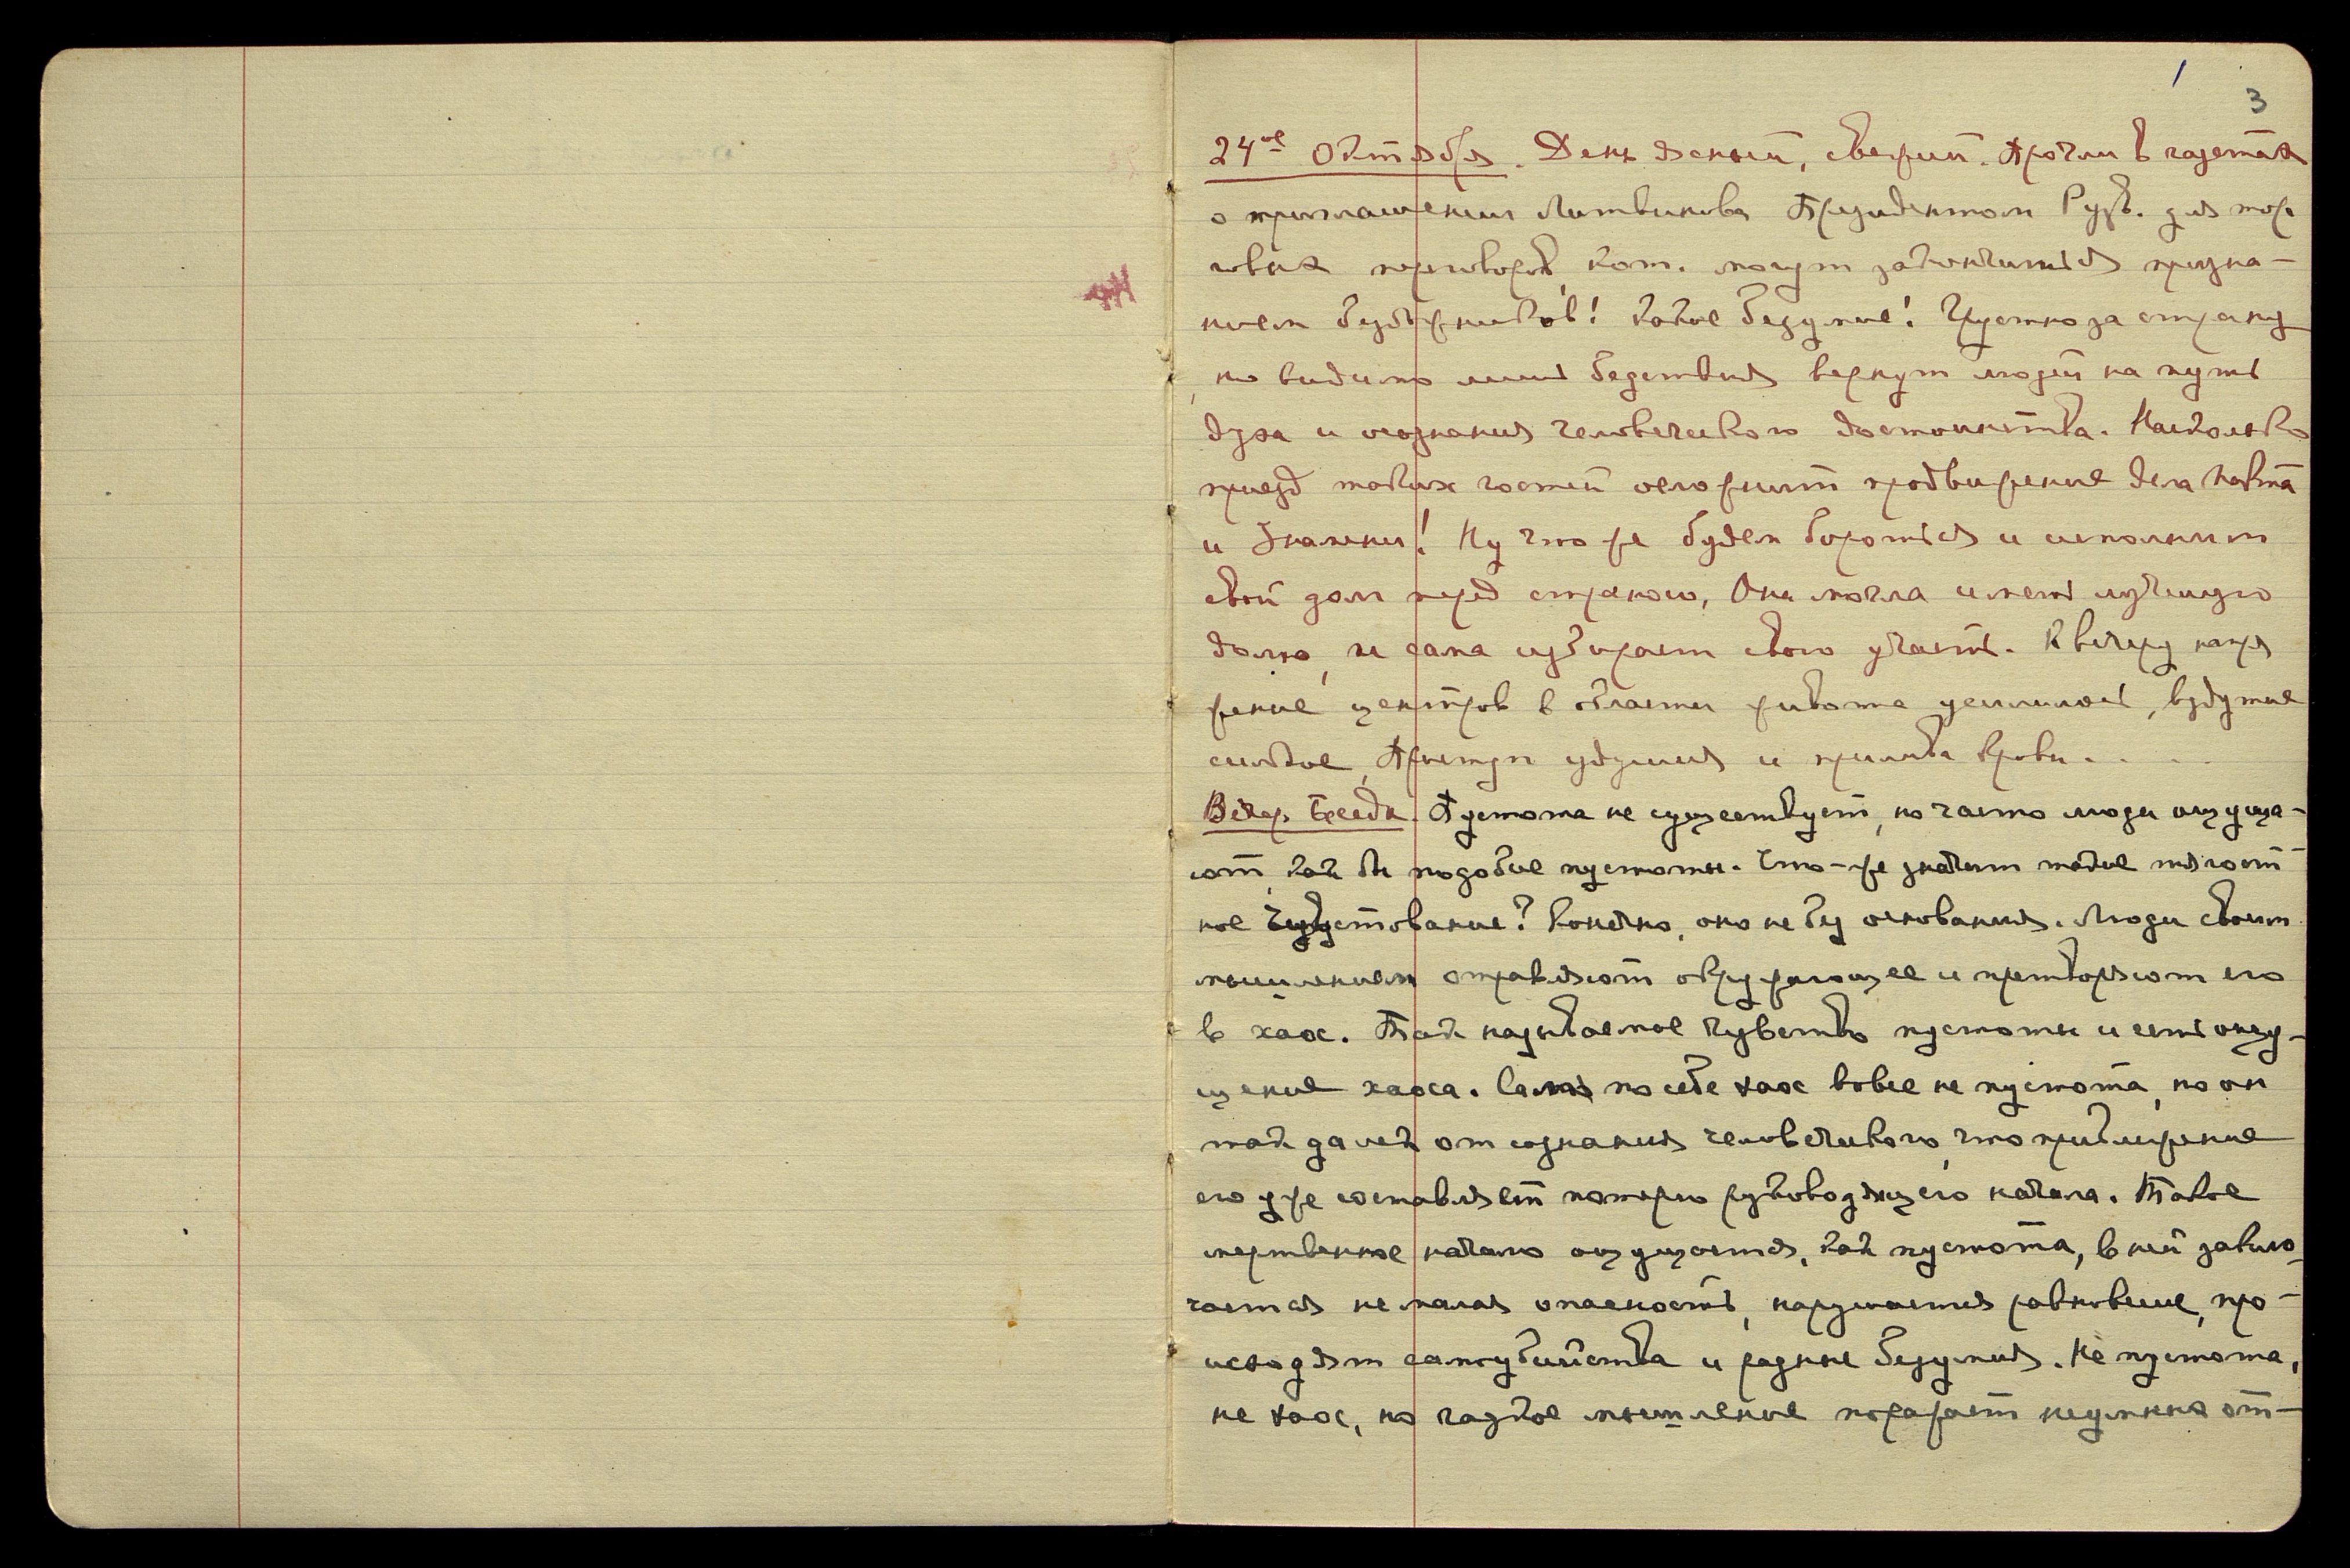 1
3
24ое Октября. День ясный, свежий. Прочли в газетах
о приглашении Литвинова Президентом Рузв. для тор
говых переговоров, кот. могут закончиться призна-
нием безбожников! Какое безумие! Грустно за страну
, но видимо лишь бедствия вернут людей на путь
духа и осознания человеческого достоинства. Насколько
приезд таких гостей осложнит продвижение дела Пакта
и Знамени! Ну что же будем бороться и исполним
свой долг перед страною, Она могла иметь лучшую
долю, и сама избирает свою участь. К вечеру напря
жение центров в области живота усилилось, вздутие
сильное, Приступ удушия и прилива крови. . . .
Вечер. Беседа. Пустота не существует, но часто люди ощуща-
ют, как бы подобие пустоты. Что-же значит такое тягост-
ное чувствование? Конечно, оно не без основания. Люди своим
мышлением отравляют окружающее и претворяют его
в хаос. Так называемое чувство пустоты и есть ощу-
щение хаоса. Сам по себе хаос вовсе не пустота, но он
так далек от сознания человеческого, что приближение
его уже составляет потерю руководящего начала. Такое
мертвенное начало ощущается, как пустота, в ней заклю-
чается не малая опасность, нарушается равновесие, про-
исходят самоубийства и разные безумия. Не пустота,
не хаос, но гадкое мышление поражает неумных от-